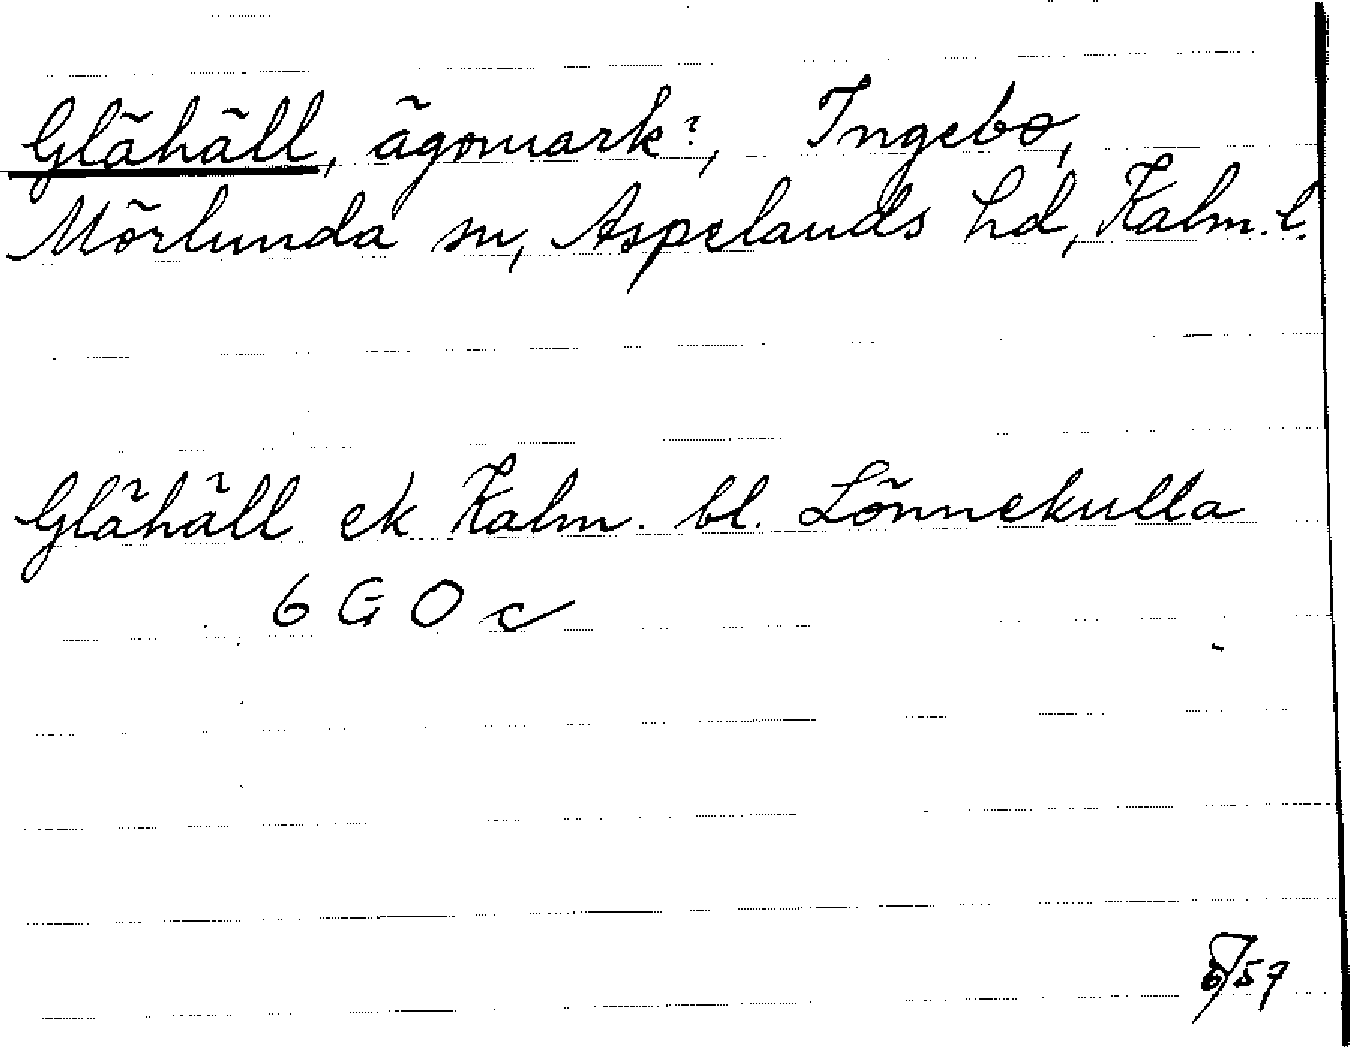 Glähäll, ägomark?, Ingebo,
Mörlunda sn, Aspelands hd, Kalm. l.
Glähäll ek Kalm. bl. Lönnekulla
6 G O c